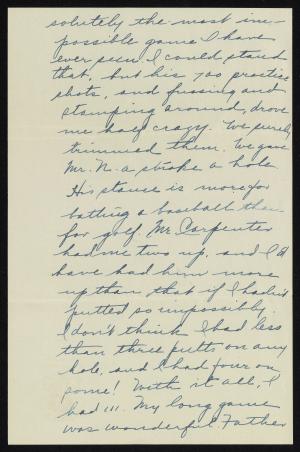 solutely the most im-
possible game I have
ever seen I could stand
that, but his 700 practice
shots, and fussing and
stamping around, drove
me half crazy. We surely
trimmed them. We gave
Mr. N. a stroke a hole
His stance is more for
batting a baseball than
for golf. Mr. Carpenter
had me two up, and I'd
have had him more
up than that if I hadn't
putted so impossibly.
I don't think I had less
than three putts on any
hole, and I had four on
some! With it all, I
had 111. My long game
was wonderful. Father